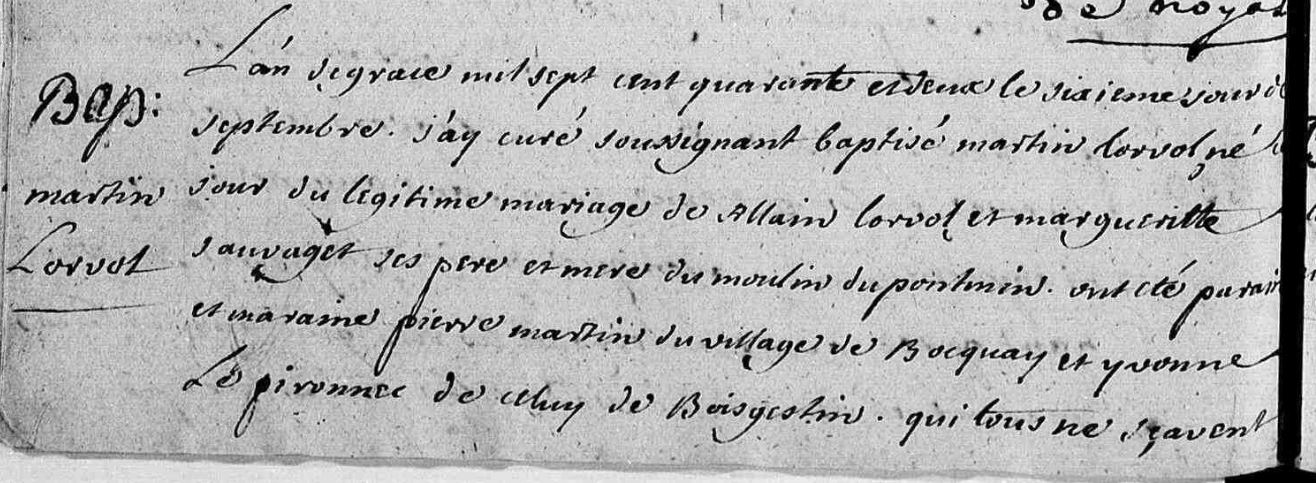 de noyal
L'an de grace mil sept cent quarante et deux le sixieme jour de
Bap:
septembre. j'ay curé soussignant baptisé martin Lorvol né
martin
jour du legitime mariage de Allain Lorvol et margueritte
Lorvol
sauvaget ses pere et mere du moulin du pontmin. ont eté parain
et maraine pierre martin du village de Bocquay et yvonne
Le pironnec de celuy de Boisgestin. qui tous ne sçavent